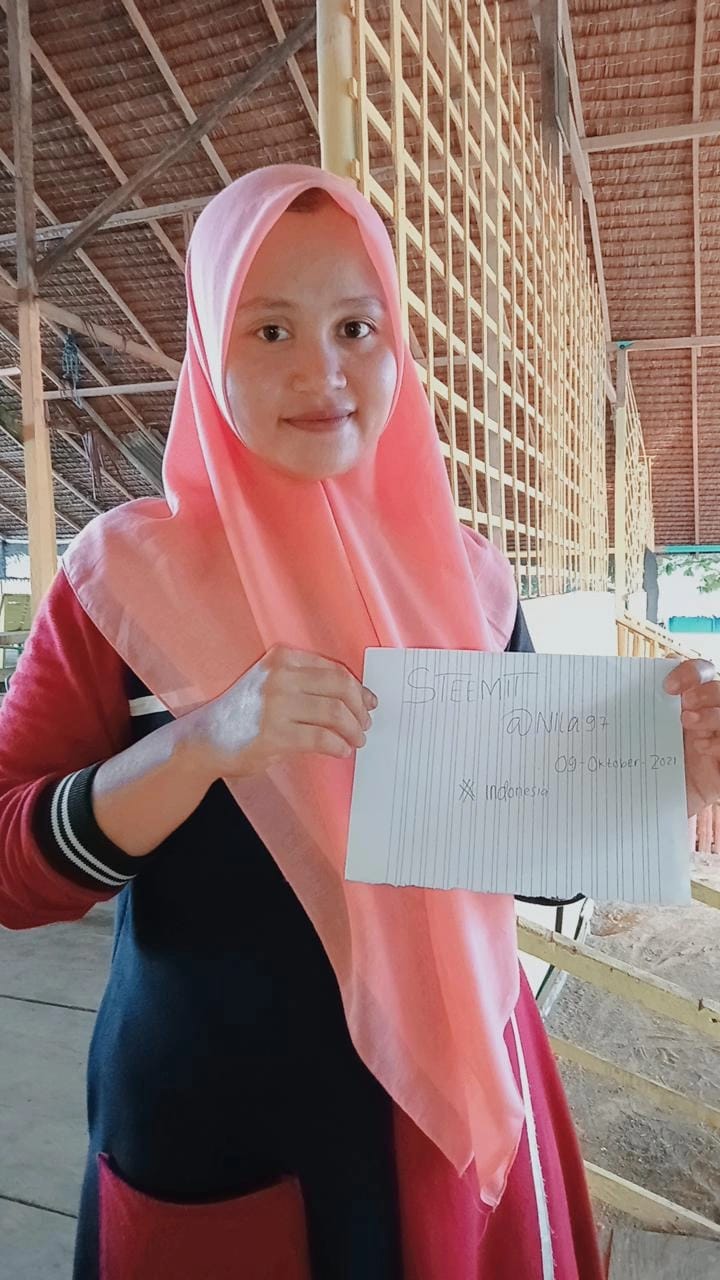 STEEMIT
@Nila97
09-Oktober-2021
# Indonesia